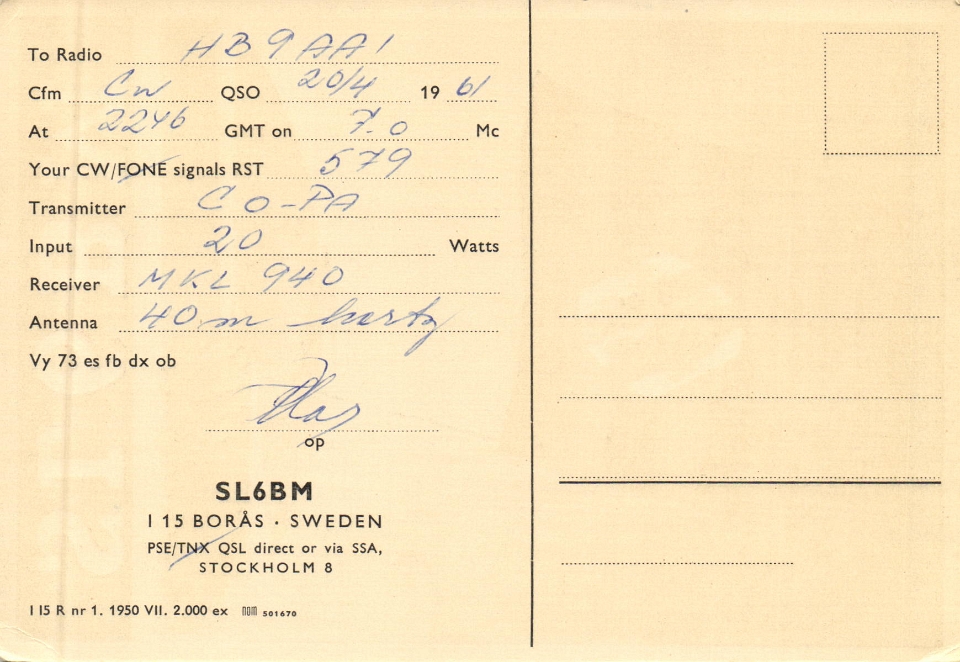 To Radio HB9AAI
Cfm CW QSO 20/4 1961
At 2246 GMT on 7.0 Mc
Your CW/FONE signals RST 579
Transmitter CO-PA
Input 20 Watts
Receiver MKL 940
Antenna 40 m hertz
Vy 73 es fb dx ob
op
SL6BM
I 15 BORÅS · SWEDEN
PSE/TNX QSL direct or via SSA,
STOCKHOLM 8
I 15 R nr 1. 1950 VII. 2.000 ex 501670